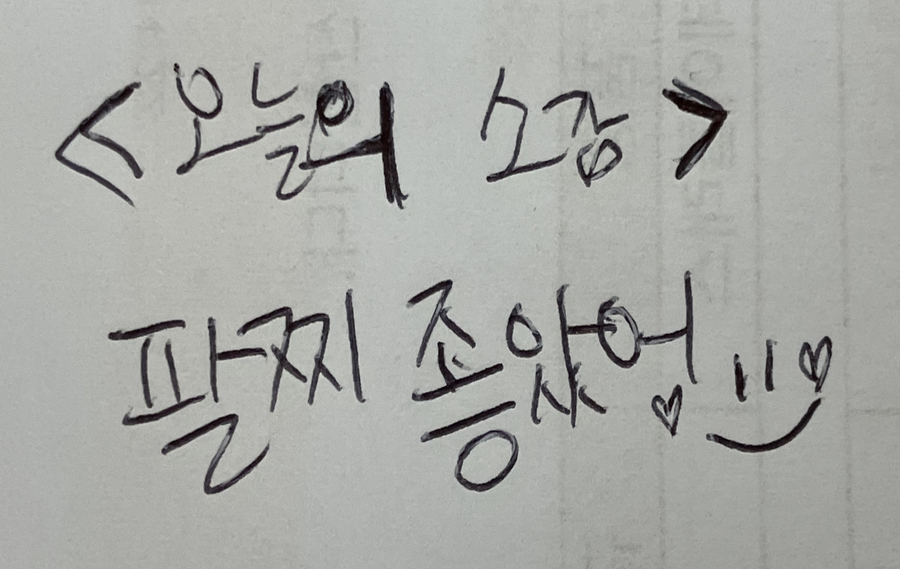 <오늘의 소장>
팔찌 좋았어 ♡ ♡